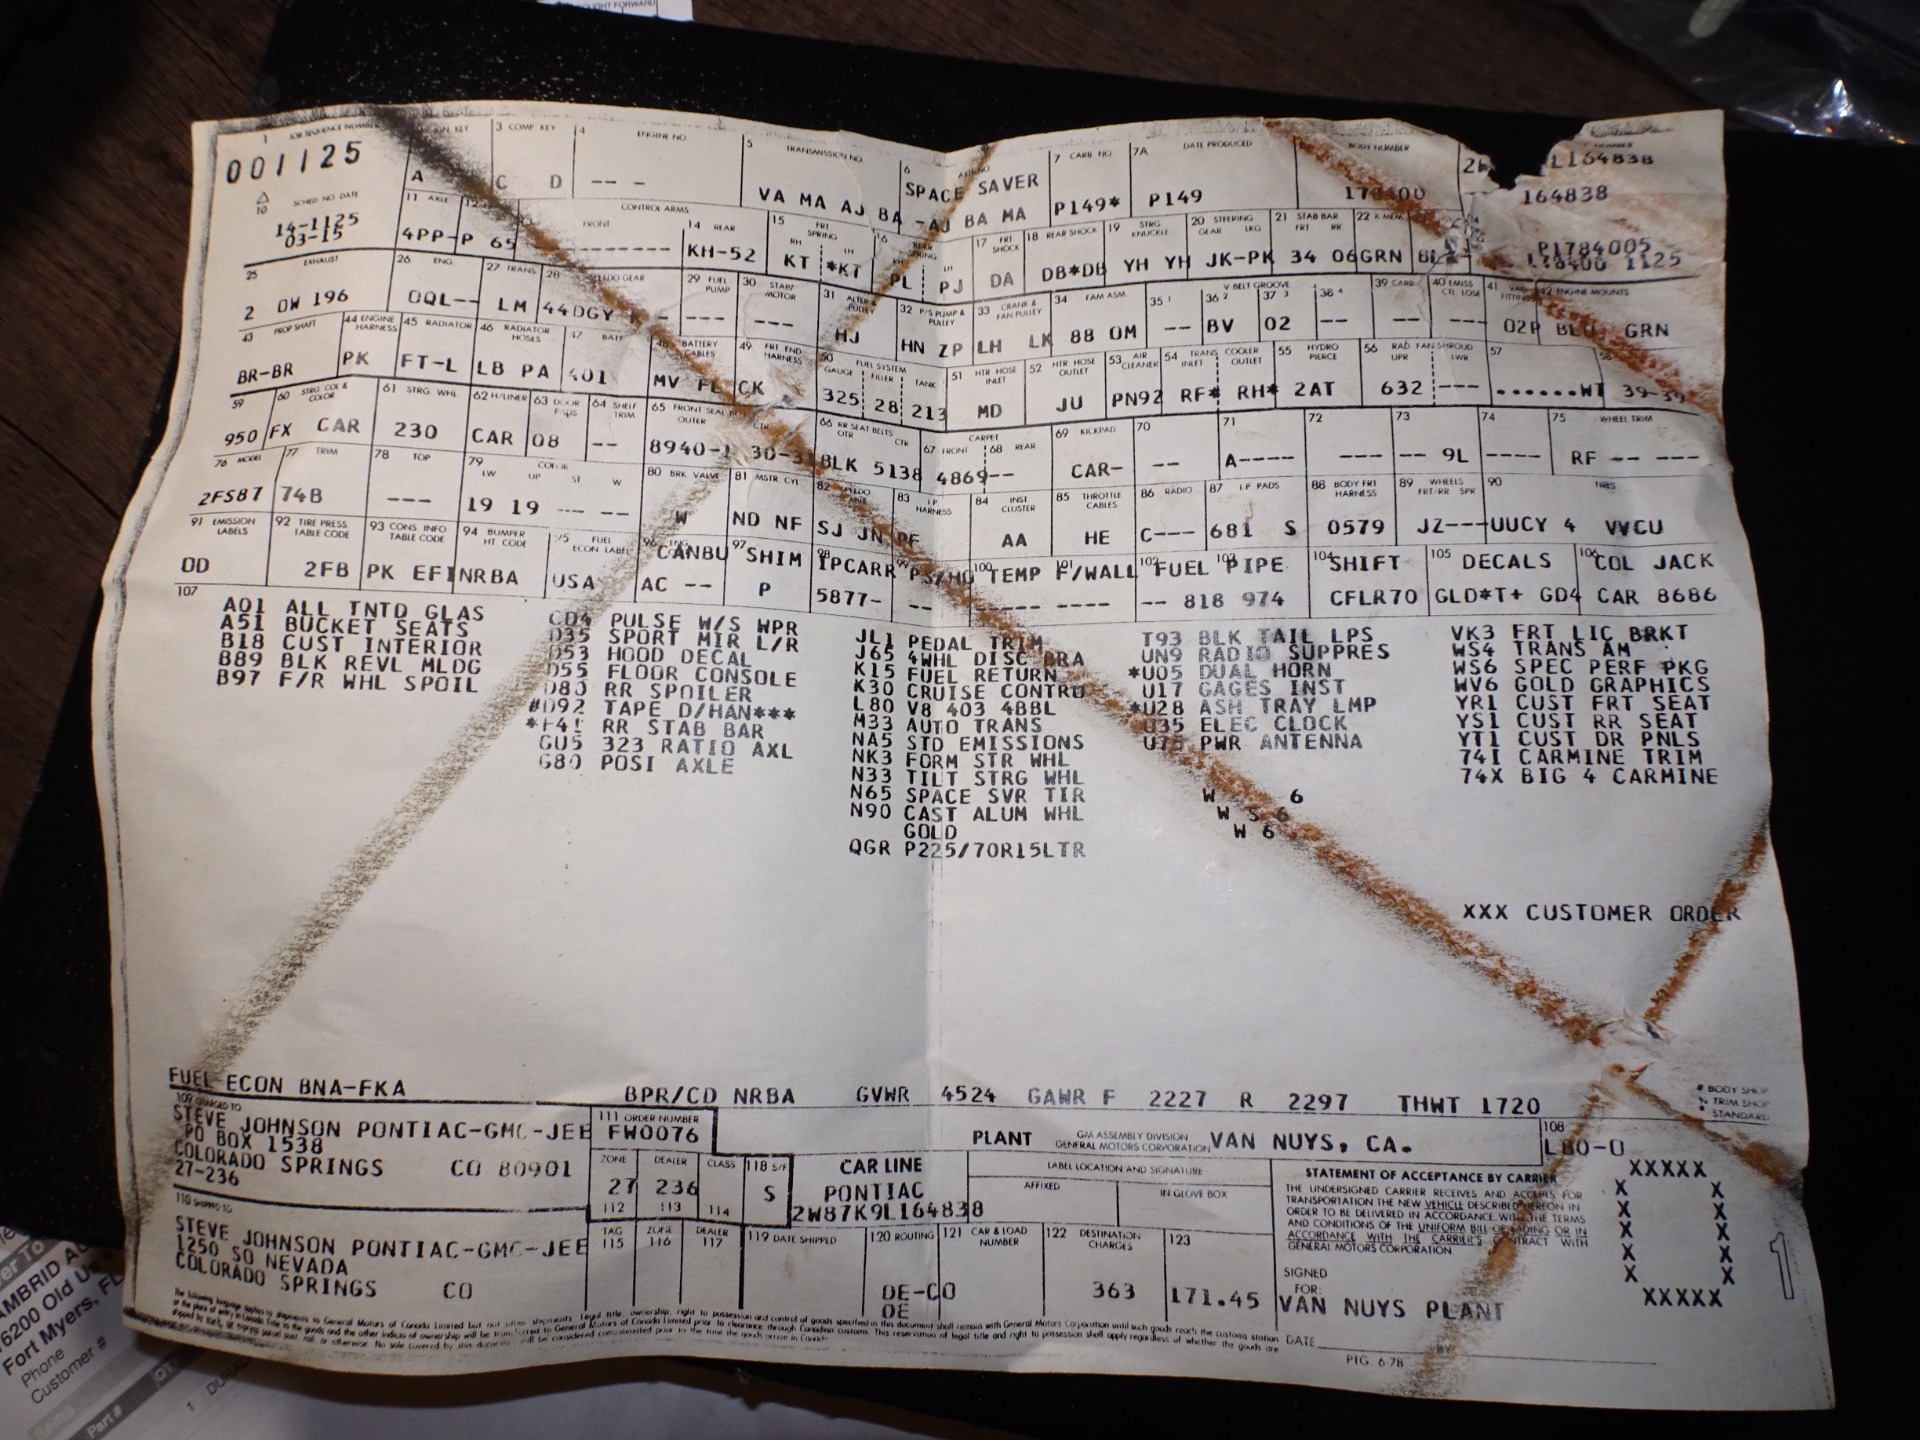 OUGHT FORWARD
1 JOB SEQUENCE NUMBER 3 COMP. KEY 4 ENGINE NO. 5 TRANSMISSION NO. 6 AXLE NO. 7 CARB NO. 7A DATE PRODUCED BODY NUMBER
001125 A C D -- - VA MA AJ BA SPACE SAVER -AJ BA MA P149* P149 178400 L164838
164838
P1784005
178400 1125
10 SCHED NO DATE 11 AXLE CONTROL ARMS FRONT 14 REAR 15 FRT SPRING RH LH 16 REAR SPRING RH LH 17 FRT SHOCK 18 REAR SHOCK 19 STRG KNUCKLE 20 STEERING GEAR LKG 21 STAB BAR FRT RR 22 X-MEM
14-1125
03-15 4PP-P 65 ------- KH-52 KT *KT PL PJ DA DB*DB YH YH JK-PK 34 06 GRN
25 EXHAUST 26 ENG. 27 TRANS 28 SPEEDO GEAR 29 FUEL PUMP 30 START MOTOR 31 ALTER & PULLEY 32 P/S PUMP & PULLEY 33 CRANK & FAN PULLEY 34 FAN ASM 35 1 V BELT GROOVE 36 2 37 3 38 4 39 CARB 40 EMISS CTL HOSE 41 VAC FITTING 42 ENGINE MOUNTS
2 OW 196 OQL-- LM 44DGY --- HJ HN ZP LH LK 88 OM -- BV 02 -- --- --- 02P BLU GRN
43 PROP SHAFT 44 ENGINE HARNESS 45 RADIATOR 46 RADIATOR HOSES 47 BATT 48 BATTERY CABLES 49 FRT END HARNESS 50 FUEL SYSTEM GAUGE FILLER TANK 51 HTR HOSE INLET 52 HTR HOSE OUTLET 53 AIR CLEANER 54 TRANS COOLER INLET OUTLET 55 HYDRO PIERCE 56 RAD FAN SHROUD UPR LWR 57 58
BR-BR PK FT-L LB PA 401 MV FL CK 325 28 213 MD JU PN92 RF* RH* 2AT 632 --- ......WT 39-39
59 60 STRG COL & COLOR 61 STRG WHL 62 H/LINER 63 DOOR PADS 64 SHELF TRIM 65 FRONT SEAT BELTS OUTER CTR 66 RR SEAT BELTS OTR CTR CARPET 67 FRONT 68 REAR 69 KICKPAD 70 71 72 73 74 75 WHEEL TRIM
950 FX CAR 230 CAR 08 -- 8940- 30-3 BLK 5138 4869-- CAR- -- A---- --- -- 9L ---- RF -- ---
76 MODEL 77 TRIM 78 TOP 79 COLOR LW UP ST W 80 BRK VALVE 81 MSTR CYL 82 SPEEDO CABLE 83 I.P. HARNESS 84 INST. CLUSTER 85 THROTTLE CABLES 86 RADIO 87 I.P. PADS 88 BODY FRT HARNESS 89 WHEELS FRT/RR SPR 90 TIRES
2FS87 74B --- 19 19 --- -- W ND NF SJ JN PF AA HE C--- 681 S 0579 JZ--- UUCY 4 VVCU
91 EMISSION LABELS 92 TIRE PRESS TABLE CODE 93 CONS INFO TABLE CODE 94 BUMPER HT. CODE 95 FUEL ECON LABEL 96 CANBU 97 SHIM 98 IPCARR 99 100 TEMP 101 F/WALL 102 FUEL 103 PIPE 104 SHIFT 105 DECALS 106 COL JACK
OD 2FB PK EFI NRBA USA AC -- P 5877- -- ---- ---- -- 818 974 CFLR70 GLD*T+ GD4 CAR 8686
107
A01 ALL TNTD GLAS
A51 BUCKET SEATS
B18 CUST INTERIOR
B89 BLK REVL MLDG
B97 F/R WHL SPOIL
CD4 PULSE W/S WPR
D35 SPORT MIR L/R
D53 HOOD DECAL
D55 FLOOR CONSOLE
D80 RR SPOILER
#D92 TAPE D/HAN***
*F41 RR STAB BAR
GU5 323 RATIO AXL
G80 POSI AXLE
JL1 PEDAL TRIM
J65 4WHL DISC BRA
K15 FUEL RETURN
K30 CRUISE CONTRO
L80 V8 403 4BBL
M33 AUTO TRANS
NA5 STD EMISSIONS
NK3 FORM STR WHL
N33 TILT STRG WHL
N65 SPACE SVR TIR
N90 CAST ALUM WHL
GOLD
QGR P225/70R15LTR
T93 BLK TAIL LPS
UN9 RADIO SUPPRES
*U05 DUAL HORN
U17 GAGES INST
*U28 ASH TRAY LMP
U35 ELEC CLOCK
U75 PWR ANTENNA
W 6
W S 6
W 6
VK3 FRT LIC BRKT
WS4 TRANS AM
WS6 SPEC PERF PKG
WV6 GOLD GRAPHICS
YR1 CUST FRT SEAT
YS1 CUST RR SEAT
YT1 CUST DR PNLS
74I CARMINE TRIM
74X BIG 4 CARMINE
XXX CUSTOMER ORDER
FUEL ECON BNA-FKA BPR/CD NRBA GVWR 4524 GAWR F 2227 R 2297 THWT 1720
# BODY SHOP
% TRIM SHOP
* STANDARD
109 CHARGED TO
STEVE JOHNSON PONTIAC-GMC-JEE
PO BOX 1538
COLORADO SPRINGS CO 80901
27-236
111 ORDER NUMBER
FW0076
ZONE DEALER CLASS 118 S/F
27 236 S
112 113 114
PLANT GM ASSEMBLY DIVISION GENERAL MOTORS CORPORATION VAN NUYS, CA.
108
L80-0
CAR LINE
PONTIAC
2W87K9L164838
LABEL LOCATION AND SIGNATURE
AFFIXED IN GLOVE BOX
STATEMENT OF ACCEPTANCE BY CARRIER
THE UNDERSIGNED CARRIER RECEIVES AND ACCEPTS FOR
TRANSPORTATION THE NEW VEHICLE DESCRIBED HEREON IN
ORDER TO BE DELIVERED IN ACCORDANCE WITH THE TERMS
AND CONDITIONS OF THE UNIFORM BILL OF LADING OR IN
ACCORDANCE WITH THE CARRIER'S CONTRACT WITH
GENERAL MOTORS CORPORATION.
XXXXX
X X
X X
X X
X X
X X
XXXXX
1
110 SHIPPED TO
STEVE JOHNSON PONTIAC-GMC-JEE
1250 SO NEVADA
COLORADO SPRINGS CO
TAG 115 ZONE 116 DEALER 117 119 DATE SHIPPED 120 ROUTING 121 CAR & LOAD NUMBER 122 DESTINATION CHARGES 123
DE-CO
DE
363 171.45
SIGNED
FOR:
VAN NUYS PLANT
DATE BY
PIG. 6-78
The following language applies to shipments to General Motors of Canada Limited but not other shipments. Legal title, ownership, right to possession and control of goods specified in this document shall remain with General Motors Corporation until such goods reach the customs station
AMBRID
6200 Old Us
Fort Myers, FL
Phone
Customer #
Items
Part #
1